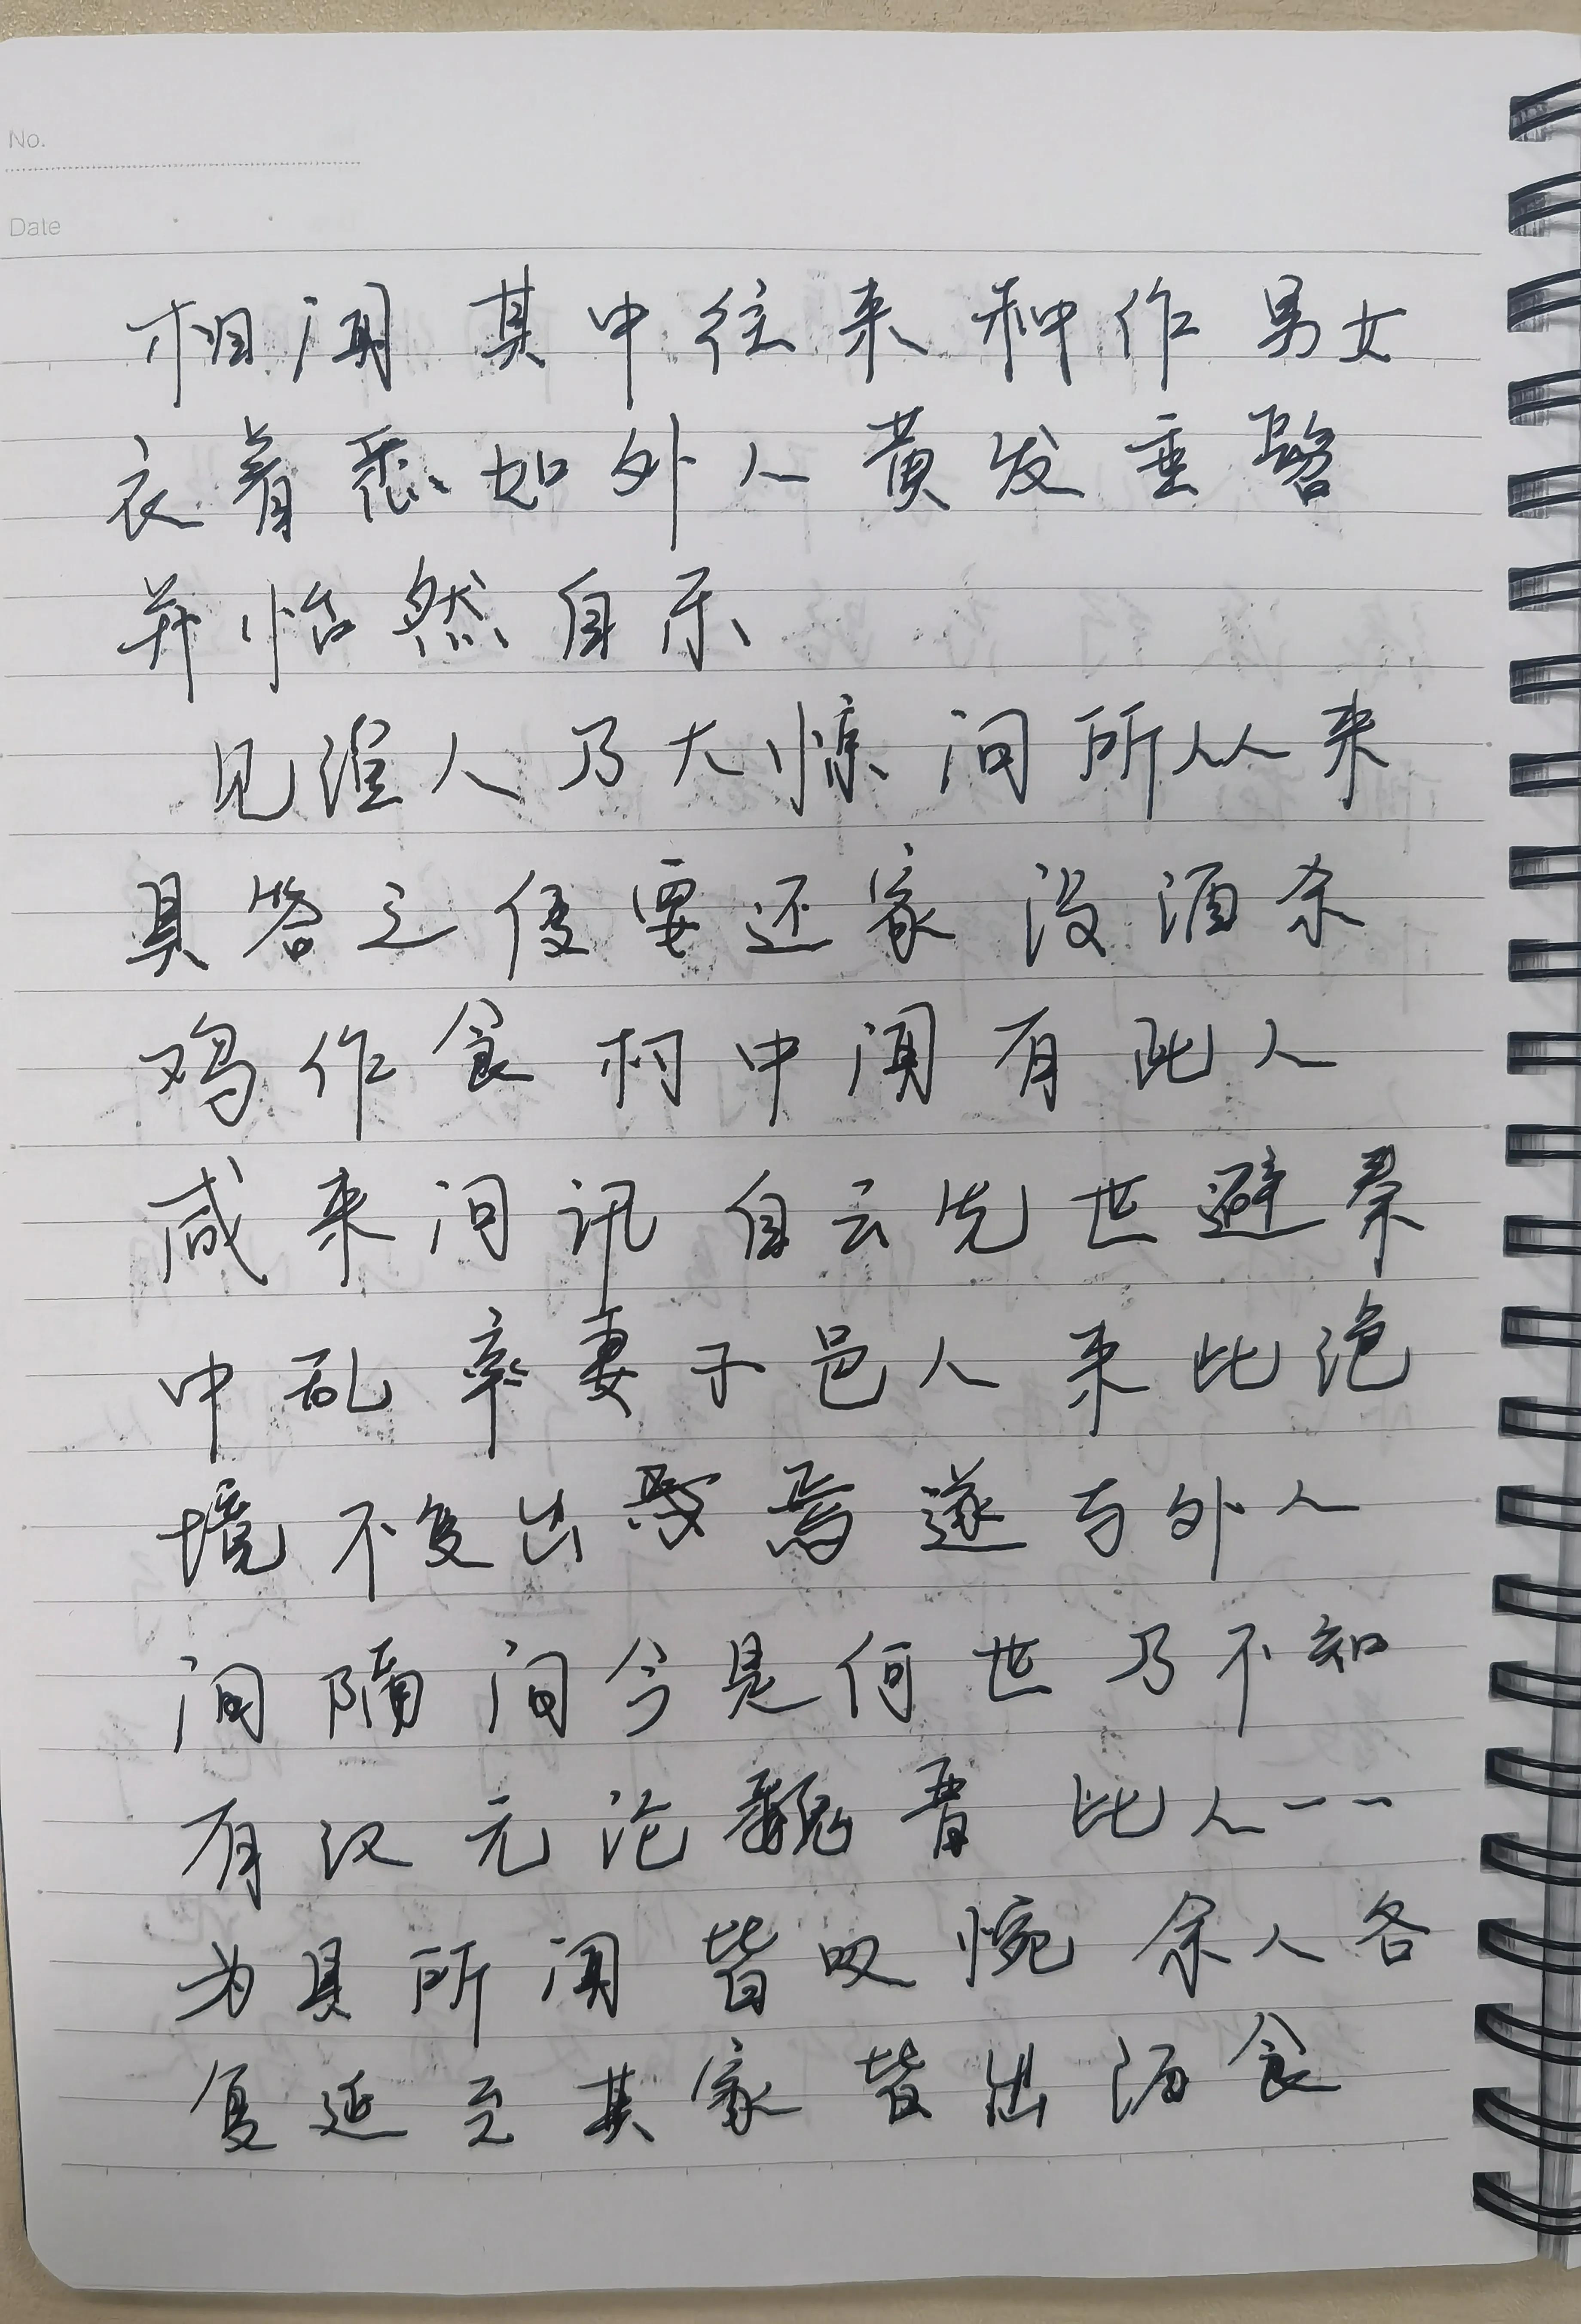 No.
Date
相闻 其中往来种作 男女
衣着悉如外人 黄发垂髫
并怡然自乐
见渔人乃大惊 问所从来
具答之便要还家 设酒杀
鸡作食 村中闻有此人
咸来问讯 自云先世避秦
中乱率妻子邑人来此绝
境 不复出 焉 遂与外人
间隔 问今是何世 乃不知
有汉无论魏晋 此人一一
为具所闻 皆叹惋 余人各
复延至其家 皆出酒食